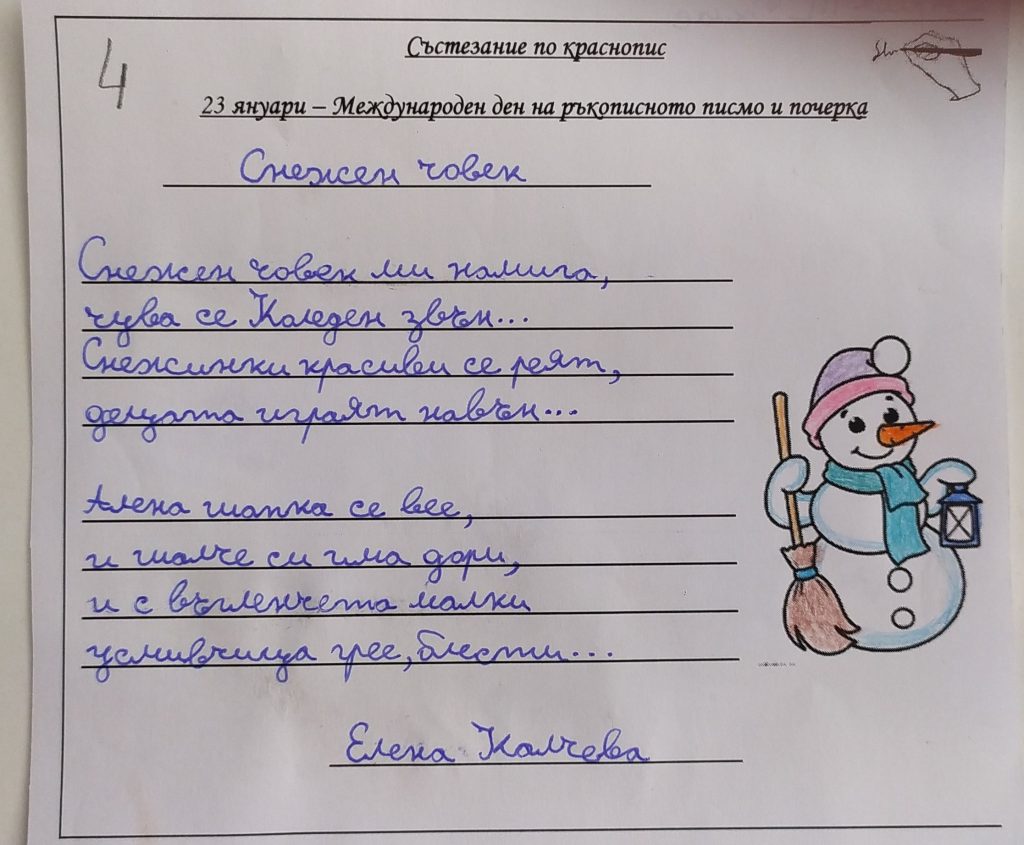 4
Състезание по краснопис
23 януари – Международен ден на ръкописното писмо и почерка
Снежен човек
Снежен човек ми намига,
чува се Коледен звън...
Снежинки красиви се реят,
децата играят навън...
Алена шапка се вее,
и шалче си има дори,
и с въгленчета малки
усмивчица грее, блести...
Елена Калчева